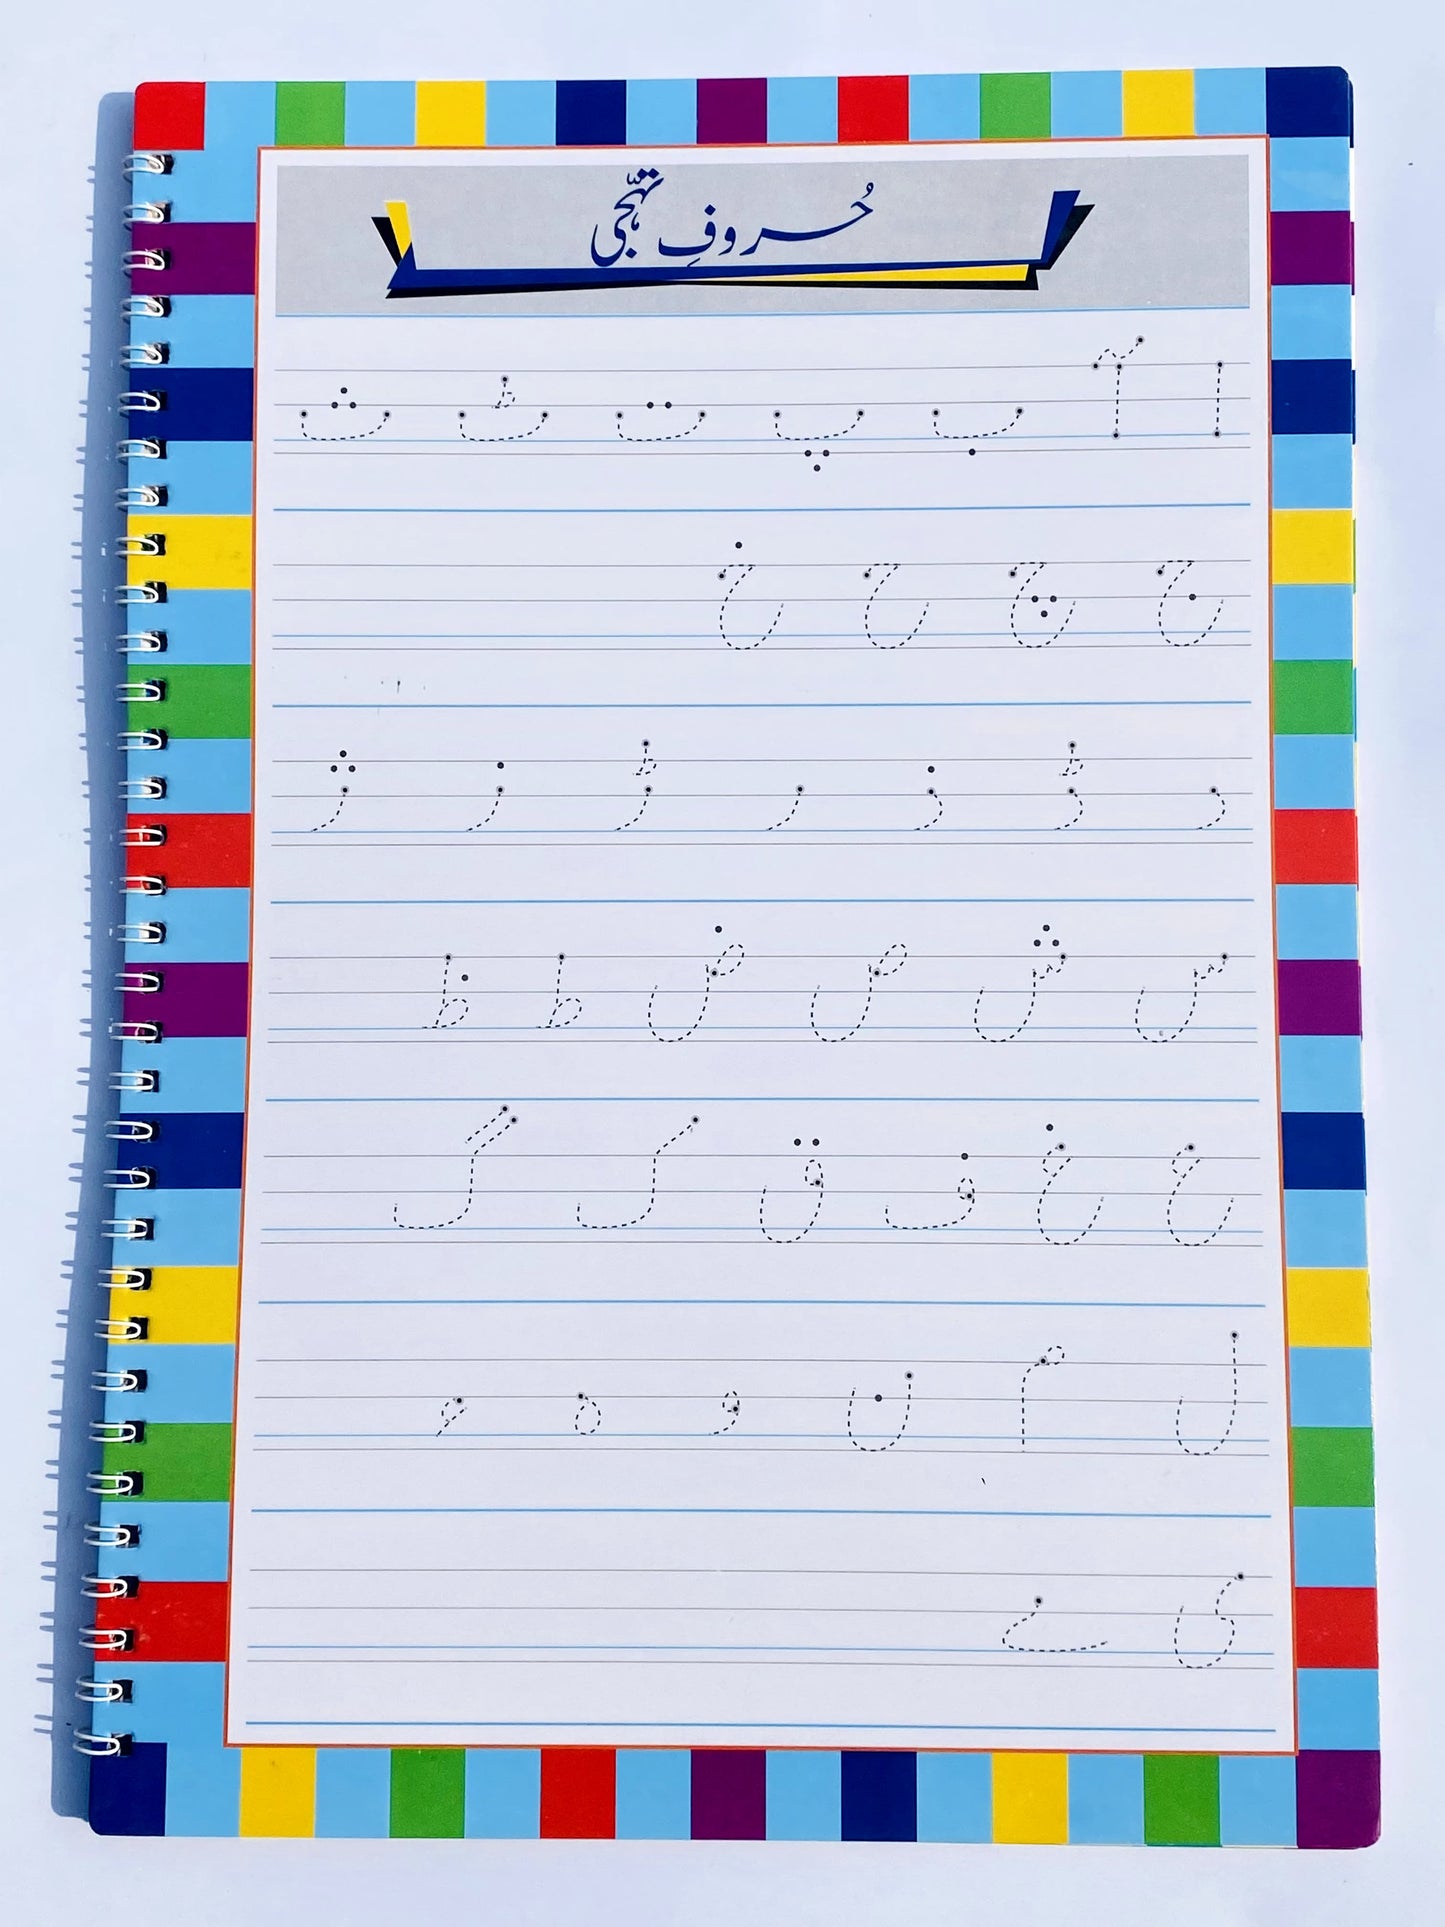 حُروفِ تہجّی
ا آ ب پ ت ٹ ث
ج چ ح خ
د ڈ ذ ر ڑ ز ژ
س ش ص ض ط ظ
ع غ ف ق ک گ
ل م ن و ہ ء
ی ے